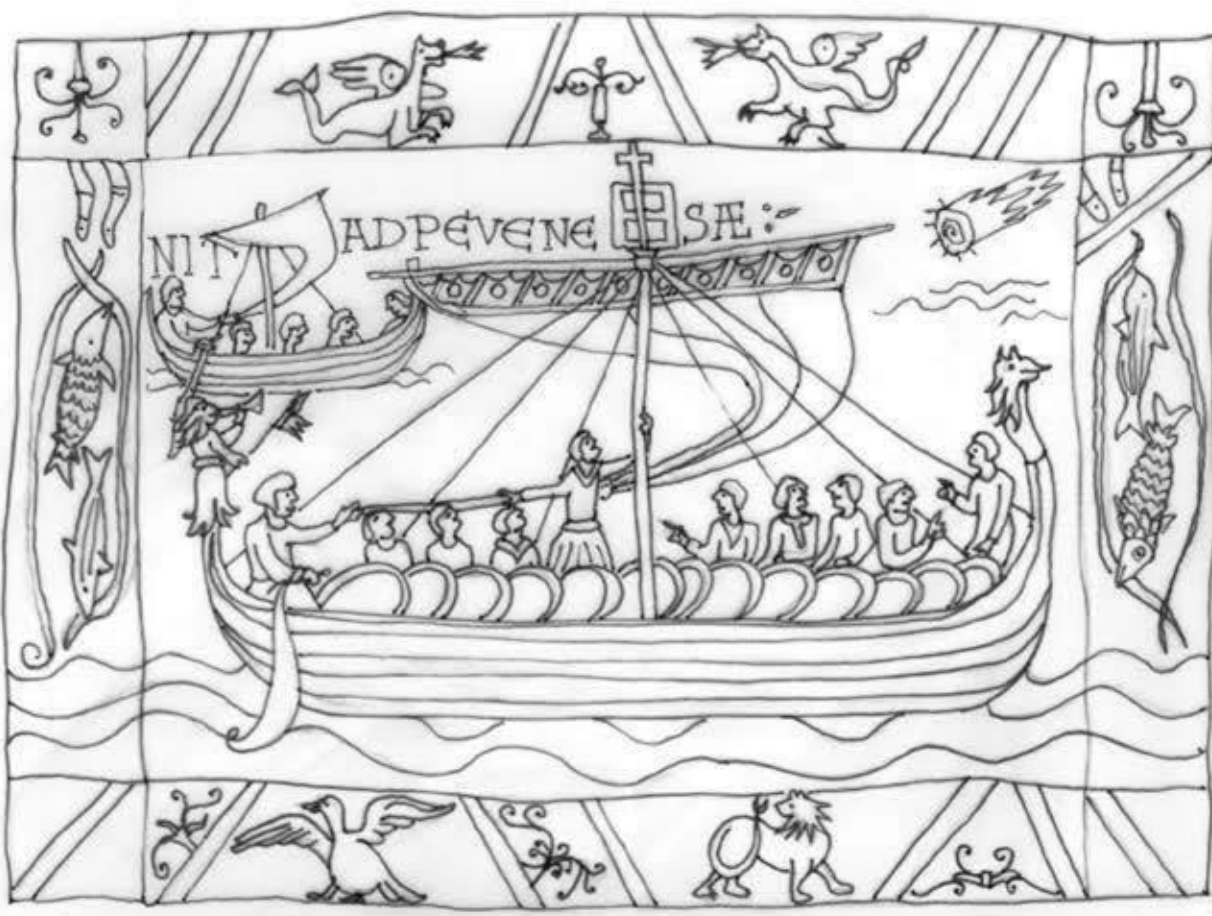 NIT AD PEVENE SÆ: